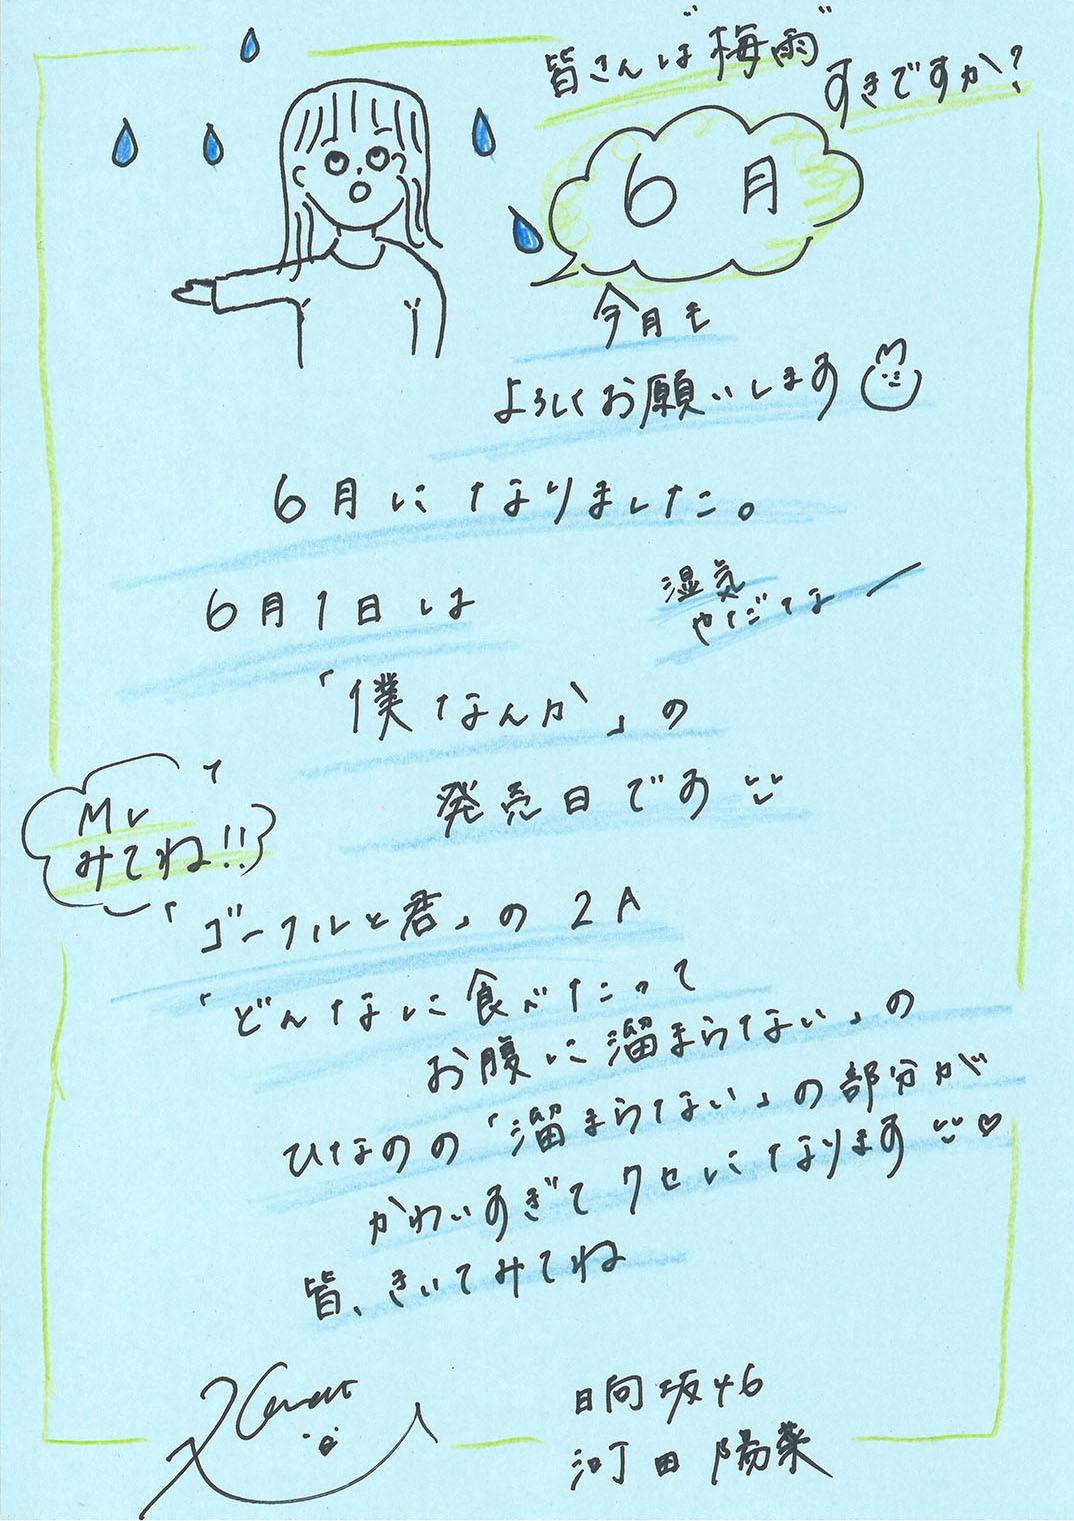 皆さんは"梅雨"
すきですか?
6月
今月も
よろしくお願いします
6月になりました。
6月1日は
湿気
やだなー
「僕なんか」の
発売日です
MV
みてね!!
「ゴーフルと君」の2A
「どんなに食べたって
お腹に溜まらない」の
ひなのの「溜まらない」の部分が
かわいすぎてクセになります
皆、きいてみてね
日向坂46
河田陽菜